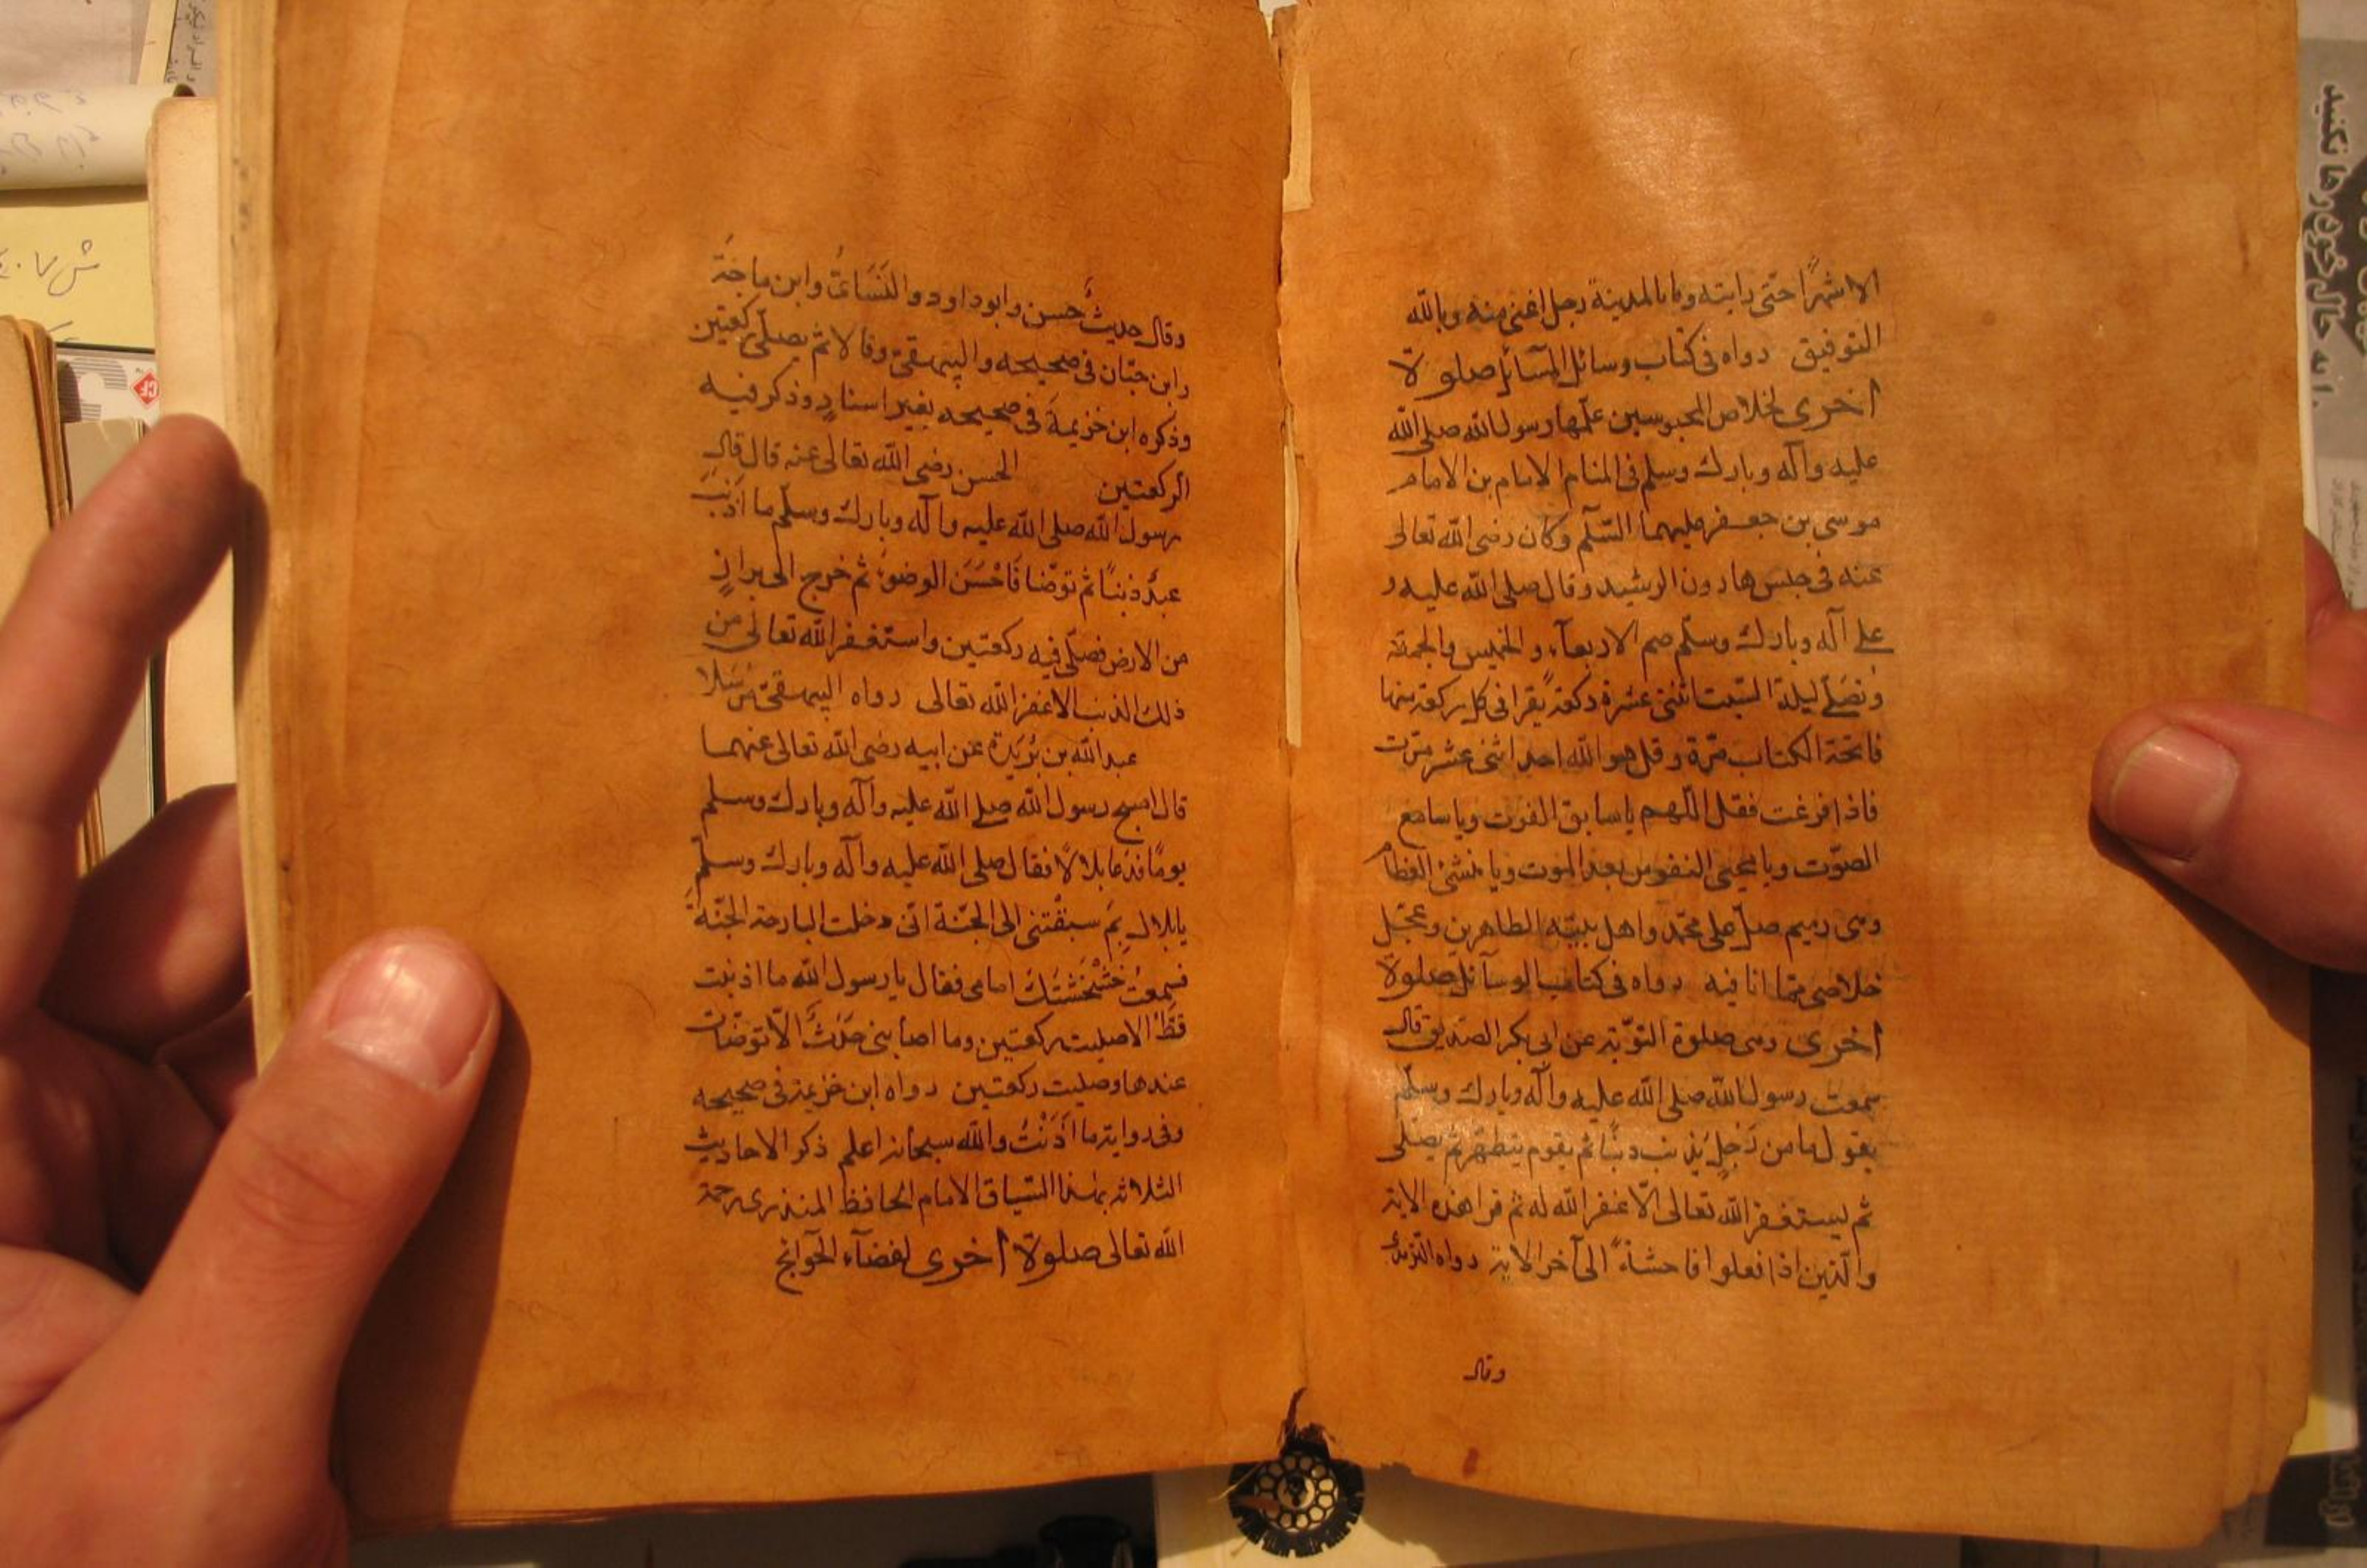 الا شهرًا حتى رايته وما بالمدينة رجل اغنى منه وبالله
التوفيق رواه فى كتاب وسائل المسآئل صلوة
اخرى لخلاص المحبوسين علمها رسول الله صلى الله
عليه وآله وبارك وسلم فى المنام الامام بن الامام
موسى بن جعفر عليهما السّلم وكان رضى الله تعالى
عنه فى حبس هارون الرشيد وقال صلى الله عليه و
على آله وبارك وسلّم صم الاربعآء والخميس والجمعة
وتصلّے ليلة السّبت اثنتى عشرة ركعة يقرا فى كل ركعة منها
فاتحة الكتاب مرّة وقل هو الله احد اثنى عشر مرّت
فاذا فرغت فقل اللّهم يا سابق الفوت ويا سامع
الصّوت ويا محيى النفوس بعد الموت ويا منشئ العظام
وهى رميم صلّ على محمّد واهل بيته الطاهرين وعجّل
خلاصى مما انا فيه رواه فى كتاب الوسآئل صلوة
اخرى وهى صلوة التوّبة عن ابى بكر الصّديق قال
سمعت رسول الله صلى الله عليه وآله وبارك وسلّم
يقول ما من رَجلٍ يذنب ذنبًا ثم يقوم يتطهّر ثم يصلى
ثم ليستغفر الله تعالى الّا غفر الله له ثم قرا هذه الاية
والّذين اذا فعلوا فاحشةً الى آخر الاية رواه الترمذى
وقال
وقال حديثٌ حسن وابو داود والنَسَاءىُ وابن ماجَة
وابن حبّان فى صحيحه والبيهقى وقالا ثم يصلّى ركعتين
وذكره ابن خزيمة فى صحيحه بغير اسنادٍ وذكر فيه
الركعتين الحسن رضى الله تعالى عنه قال قال
رسول الله صلى الله عليه وآله وبارك وسلّم ما اذنبَ
عبدٌ ذنبًا ثم توضّا فَاَحْسَنَ الوضوءَ ثم خرج الى برازٍ
من الارض فصلّى فيه ركعتين واستغفر الله تعالى من
ذلك الذنب الا غفر الله تعالى رواه البيهقى مُرسَلا
عبد الله بن بُرَيدة عن ابيه رضى الله تعالى عنهما
قال اصبح رسول الله صلے الله عليه وآله وبارك وسلم
يومًا فدعا بلالاً فقال صلى الله عليه وآله وبارك وسلّم
يابلال بِمَ سبقْتنى الى الجنّة انى دخلت البارحة الجنّة
فسمعتُ خَشْخَشَتَكَ امامى فقال يا رسول الله ما اذنبت
قَطّ الا صليت ركعتين وما اصابنى حَدَثٌ الّا توضّات
عندها وصليت ركعتين رواه ابن خزيمة فى صحيحه
وفى رواية ما اَذَّنْتُ والله سبحانه اعلم ذكر الاحاديث
الثلاثه بهذا السّياق الامام الحافظ المنذرى رحمة
الله تعالى صلوة اخرى لقضآء الحوآئج